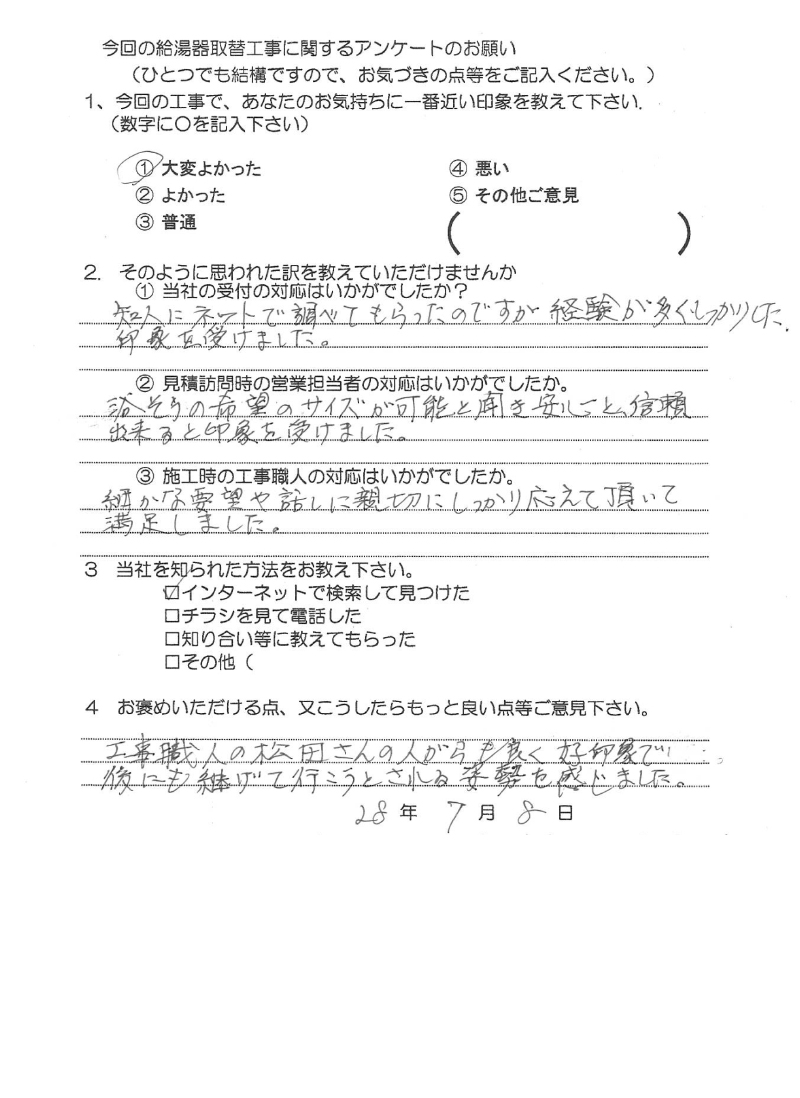 今回の給湯器取替工事に関するアンケートのお願い
（ひとつでも結構ですので、お気づきの点等をご記入ください。）
1、今回の工事で、あなたのお気持ちに一番近い印象を教えて下さい.
（数字に〇を記入下さい）
① 大変よかった ④ 悪い
② よかった ⑤ その他ご意見
③ 普通 （ ）
2. そのように思われた訳を教えていただけませんか
① 当社の受付の対応はいかがでしたか？
知人にネットで調べてもらったのですが経験が多くしっかりした
印象を受けました。
② 見積訪問時の営業担当者の対応はいかがでしたか。
浴そうの希望のサイズが可能と聞き安心と、信頼
出来ると印象を受けました。
③ 施工時の工事職人の対応はいかがでしたか。
細かな要望や話しに親切にしっかり応えて頂いて
満足しました。
3 当社を知られた方法をお教え下さい。
☑インターネットで検索して見つけた
□チラシを見て電話した
□知り合い等に教えてもらった
□その他（
4 お褒めいただける点、又こうしたらもっと良い点等ご意見下さい。
工事職人の松田さんの人がらも良く好印象で
後にも継げて行こうとされる姿勢を感じました。
28 年 7 月 8 日